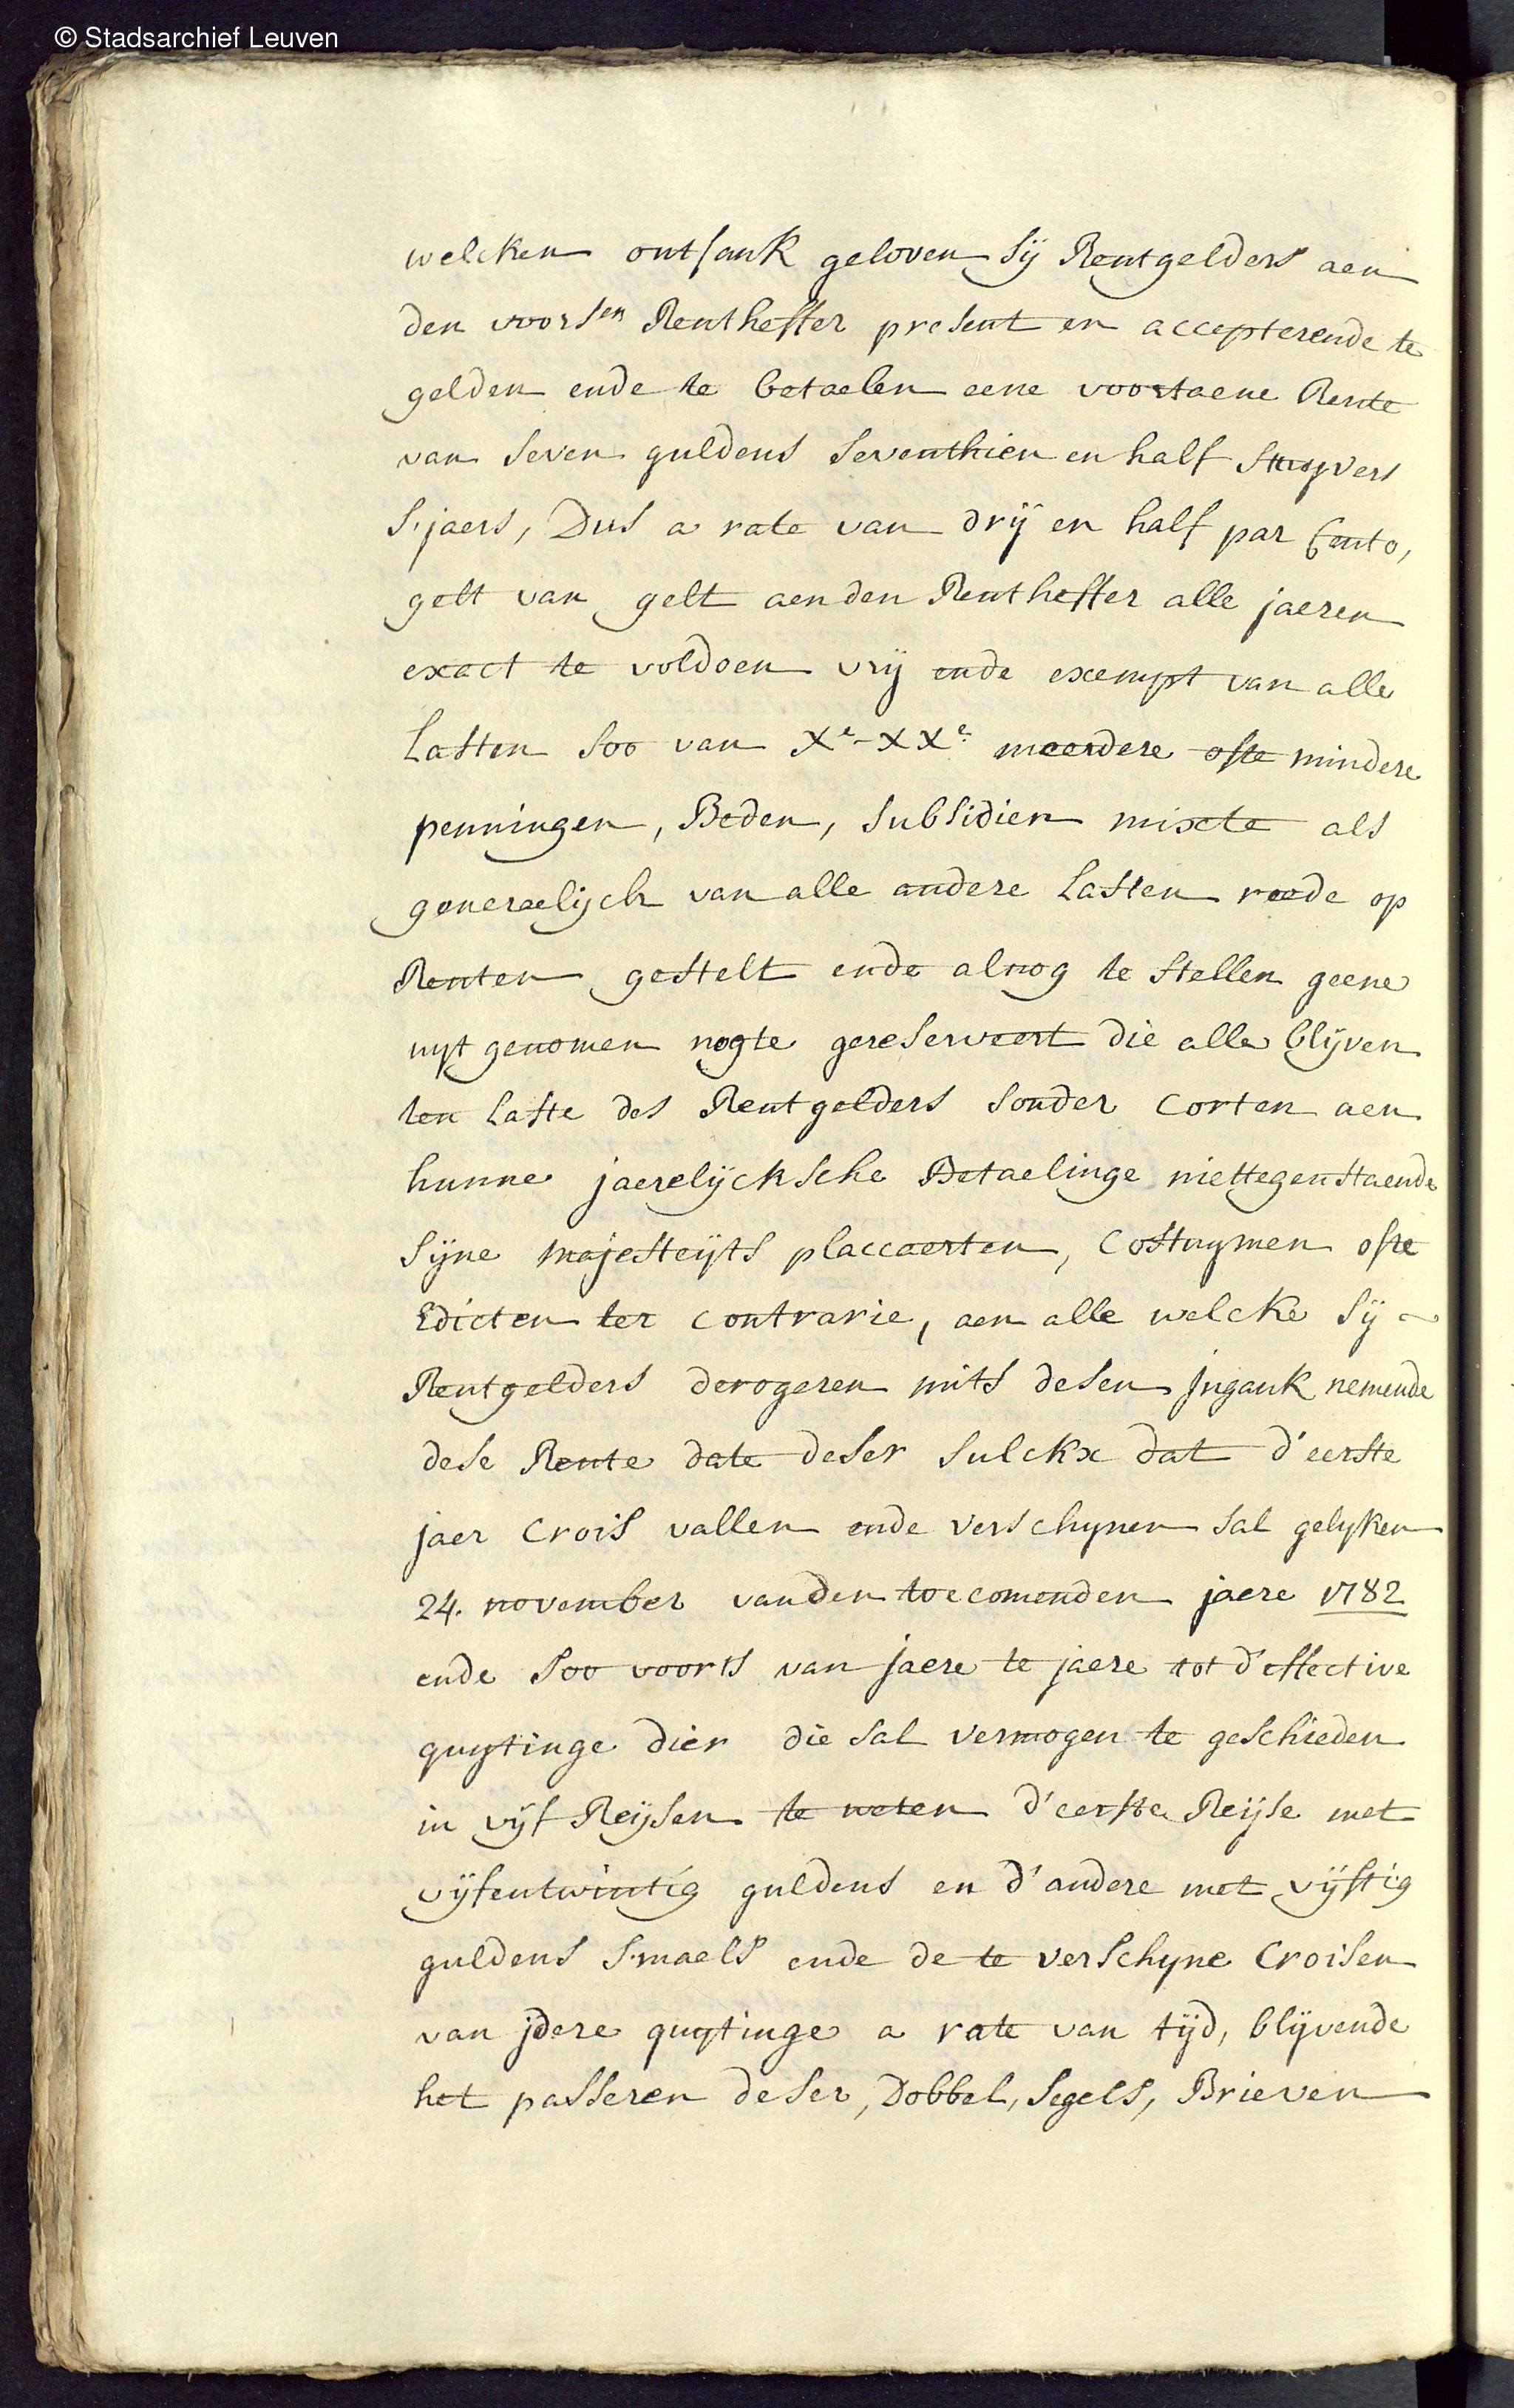 © Stadsarchief Leuven
welcken ontfank geloven sij Rentgelders aen
den voorsen Rentheffer present en accepterende te
gelden ende te betaelen eene voorstaene Rente
van seven guldens seventhien en half stuyvers
s'jaers, Dus a rate van drij en half par Cento,
gelt van gelt aen den Rentheffer alle jaeren
exact te voldoen vrij ende exempt van alle
Lasten soo van Xe-XXe meerdere ofte mindere
penningen, Beden, subsidien mixte als
generaelijck van alle andere Lasten reede op
Renten gestelt ende alnog te stellen geene
uyt genomen nogte gereserveert die alle blijven
ten laste des Rentgelders sonder corten aen
hunne jaerelijcksche Betaelinge niettegenstaende
sijne majesteijts placcaerten, Costuymen ofte
Edicten ter contrarie, aen alle welcke sij ~
Rentgelders derogeren mits desen Jngank nemende
dese Rente date deser sulckx dat d'eerste
jaer Crois vallen ende verschynen sal gelyken
24. november vanden toecomenden jaere 1782
ende soo voorts van jaere te jaere tot d'effective
quytinge dier die sal vermogen te geschieden
in vijf Reijsen te weten d'eerste Reijse met
vijfentwintig guldens en d'andere met vijftig
guldens s'maels ende de te verschyne Croisen
van jdere quytinge a rate van tijd, blijvende
het passeren deser, Dobbel, segels, Brieven